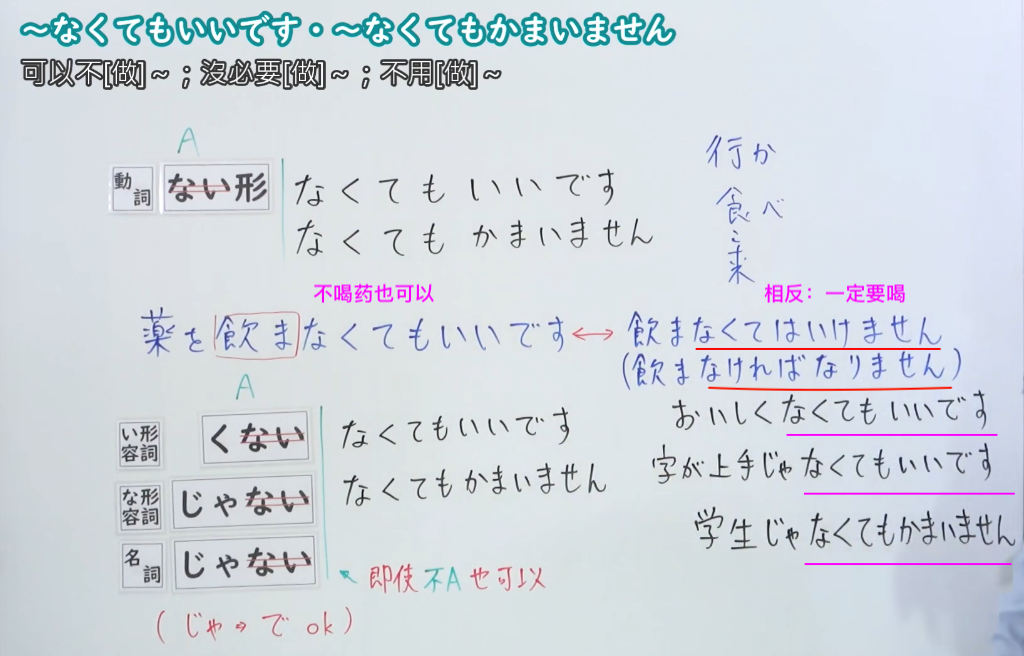 ～なくてもいいです・～なくてもかまいません
可以不[做]～；沒必要[做]～；不用[做]～
A
動詞 ない形 なくてもいいです
なくてもかまいません
行か
食べ
こ
来
不喝药也可以
相反：一定要喝
薬を飲まなくてもいいです ↔ 飲まなくてはいけません
(飲まなければなりません)
A
い形容詞 くない なくてもいいです
な形容詞 じゃない なくてもかまいません
名詞 じゃない
即使不A也可以
(じゃ→で ok)
おいしくなくてもいいです
字が上手じゃなくてもいいです
学生じゃなくてもかまいません